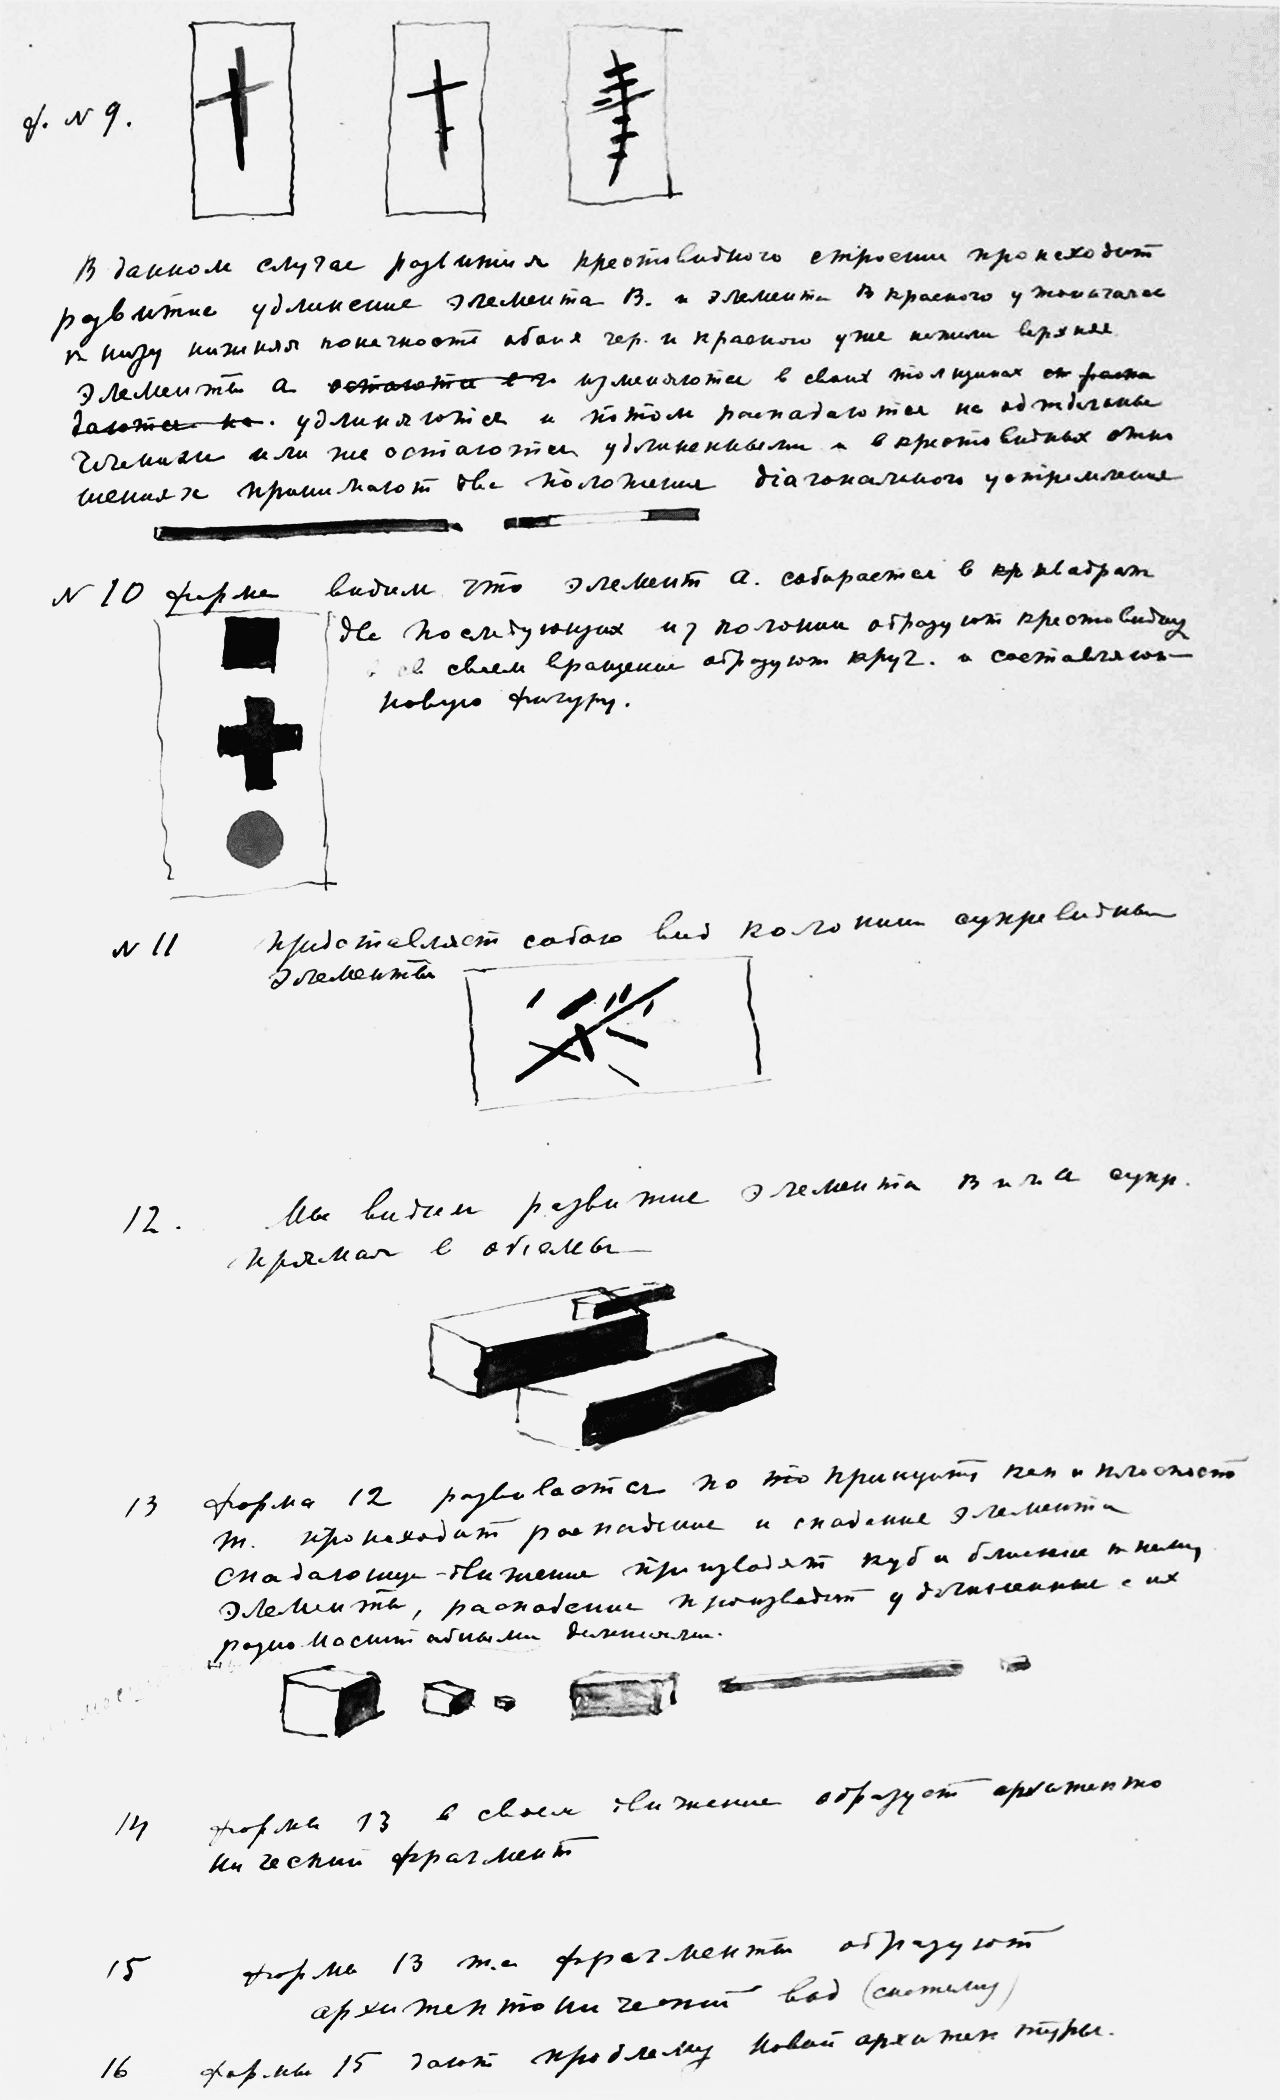 ф. N 9.
В данном случае развития крестовидного строения происходит
развитие удлинение элемента В. и элемента В красного утончаясь
к низу нижняя конечность обоих чер. и красного уже нежели верхнее.
Элементы а остаются изменяются в своих толщинах распа
даются на. удлиняются и потом распадаются на отдельные
членики или же остаются удлиненными и в крестовидных отно
шениях принимают две положения діагонального устремления
N 10 форма видим что элемент а. собирается в кр квадрат
две последующих из колонии образуют крестовидну
в своем вращении образуют круг. и составляют
новую фигуру.
N 11 представляет собою вид колонии супревидным
элементы
12. Мы видим развитие элемента В или а супр.
прямая в обiемы
13 форма 12 развивается по то принципу как и плоскост
т. происходит распадение и спадение элемента
спадающее движение производят куб и близкие к нему
элементы, распадение производит удлиненные с их
разно масштабными
14 форма 13 в своем движение образует архитекто
нический фрагмент
15 форма 13 т.е фрагменты образуют
архитектонический вид (систему)
16 формы 15 дают проблему новой архитектуры.